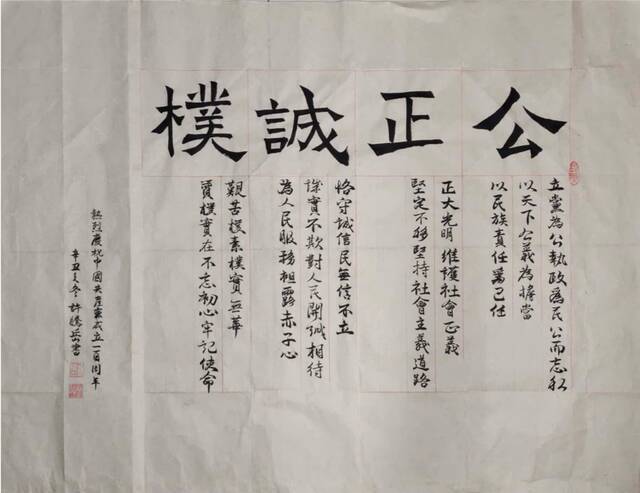 公正誠樸
立黨為公執政為民公而忘私
以天下公義為擔當
以民族責任為己任
正大光明維護社會正義
堅定不移堅持社會主義道路
恪守誠信民無信不立
誠實不欺對人民開誠相待
為人民服務袒露赤子心
艱苦樸素樸實無華
質樸實在不忘初心牢記使命
熱烈慶祝中國共產黨成立一百周年
辛丑之冬許岳書